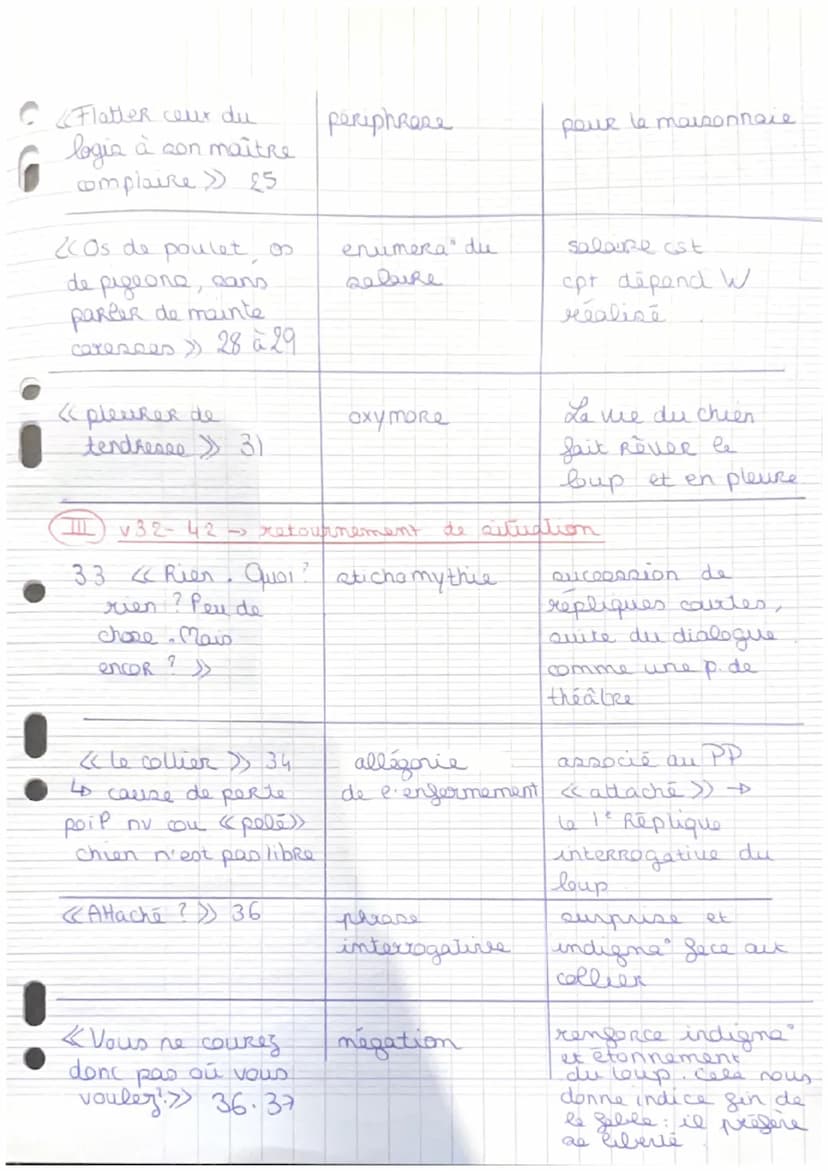 «Flatter ceux du
logis à son maître
complaire» 25
périphrase
pour la maisonnaie
«Os de poulet, os
de pigeons, sans
parler de mainte
caresses» 28 à 29
enumera° du
salaire
salaire cst
cpt dépend W
réalisé
«pleurer de
tendresse» 31
oxymore
La vie du chien
fait rêver le
loup et en pleure
III v32-42 → retournement de situation
33 «Rien. Quoi?
rien? Peu de
chose. Mais
encor?»
stichomythie
succession de
répliques courtes,
suite du dialogue
comme une p. de
théâtre
«Le collier» 34
↳ cause de perte
poiP nv cou «pelé»
chien n'est pas libre
allégorie
de l'enfermement
associé au PP
«attaché» →
la 1e Réplique
interrogative du
loup
«Attaché?» 36
phrase
interrogative
surprise et
indigna° face au
collier
«Vous ne courez
donc pas où vous
voulez?» 36.37
négation
renforce indigna°
et étonnement
du loup. Cela nous
donne indice fin de
la fable: il préfère
sa liberté